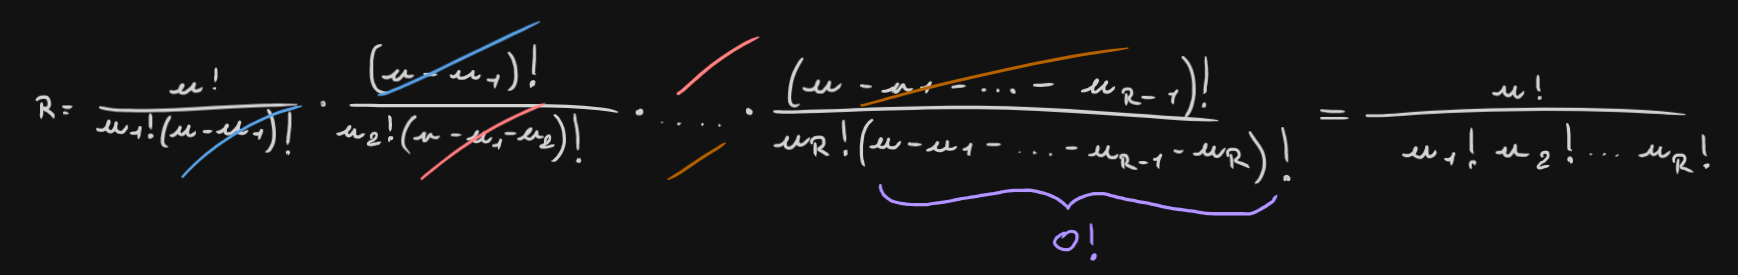 R = \frac{n!}{n_1!(n-n_1)!} \cdot \frac{(n-n_1)!}{n_2!(n-n_1-n_2)!} \cdot ..... \cdot \frac{(n-n_1-...-n_{R-1})!}{n_R!(n-n_1-...-n_{R-1}-n_R)!} = \frac{n!}{n_1! n_2! ... n_R!}
0!